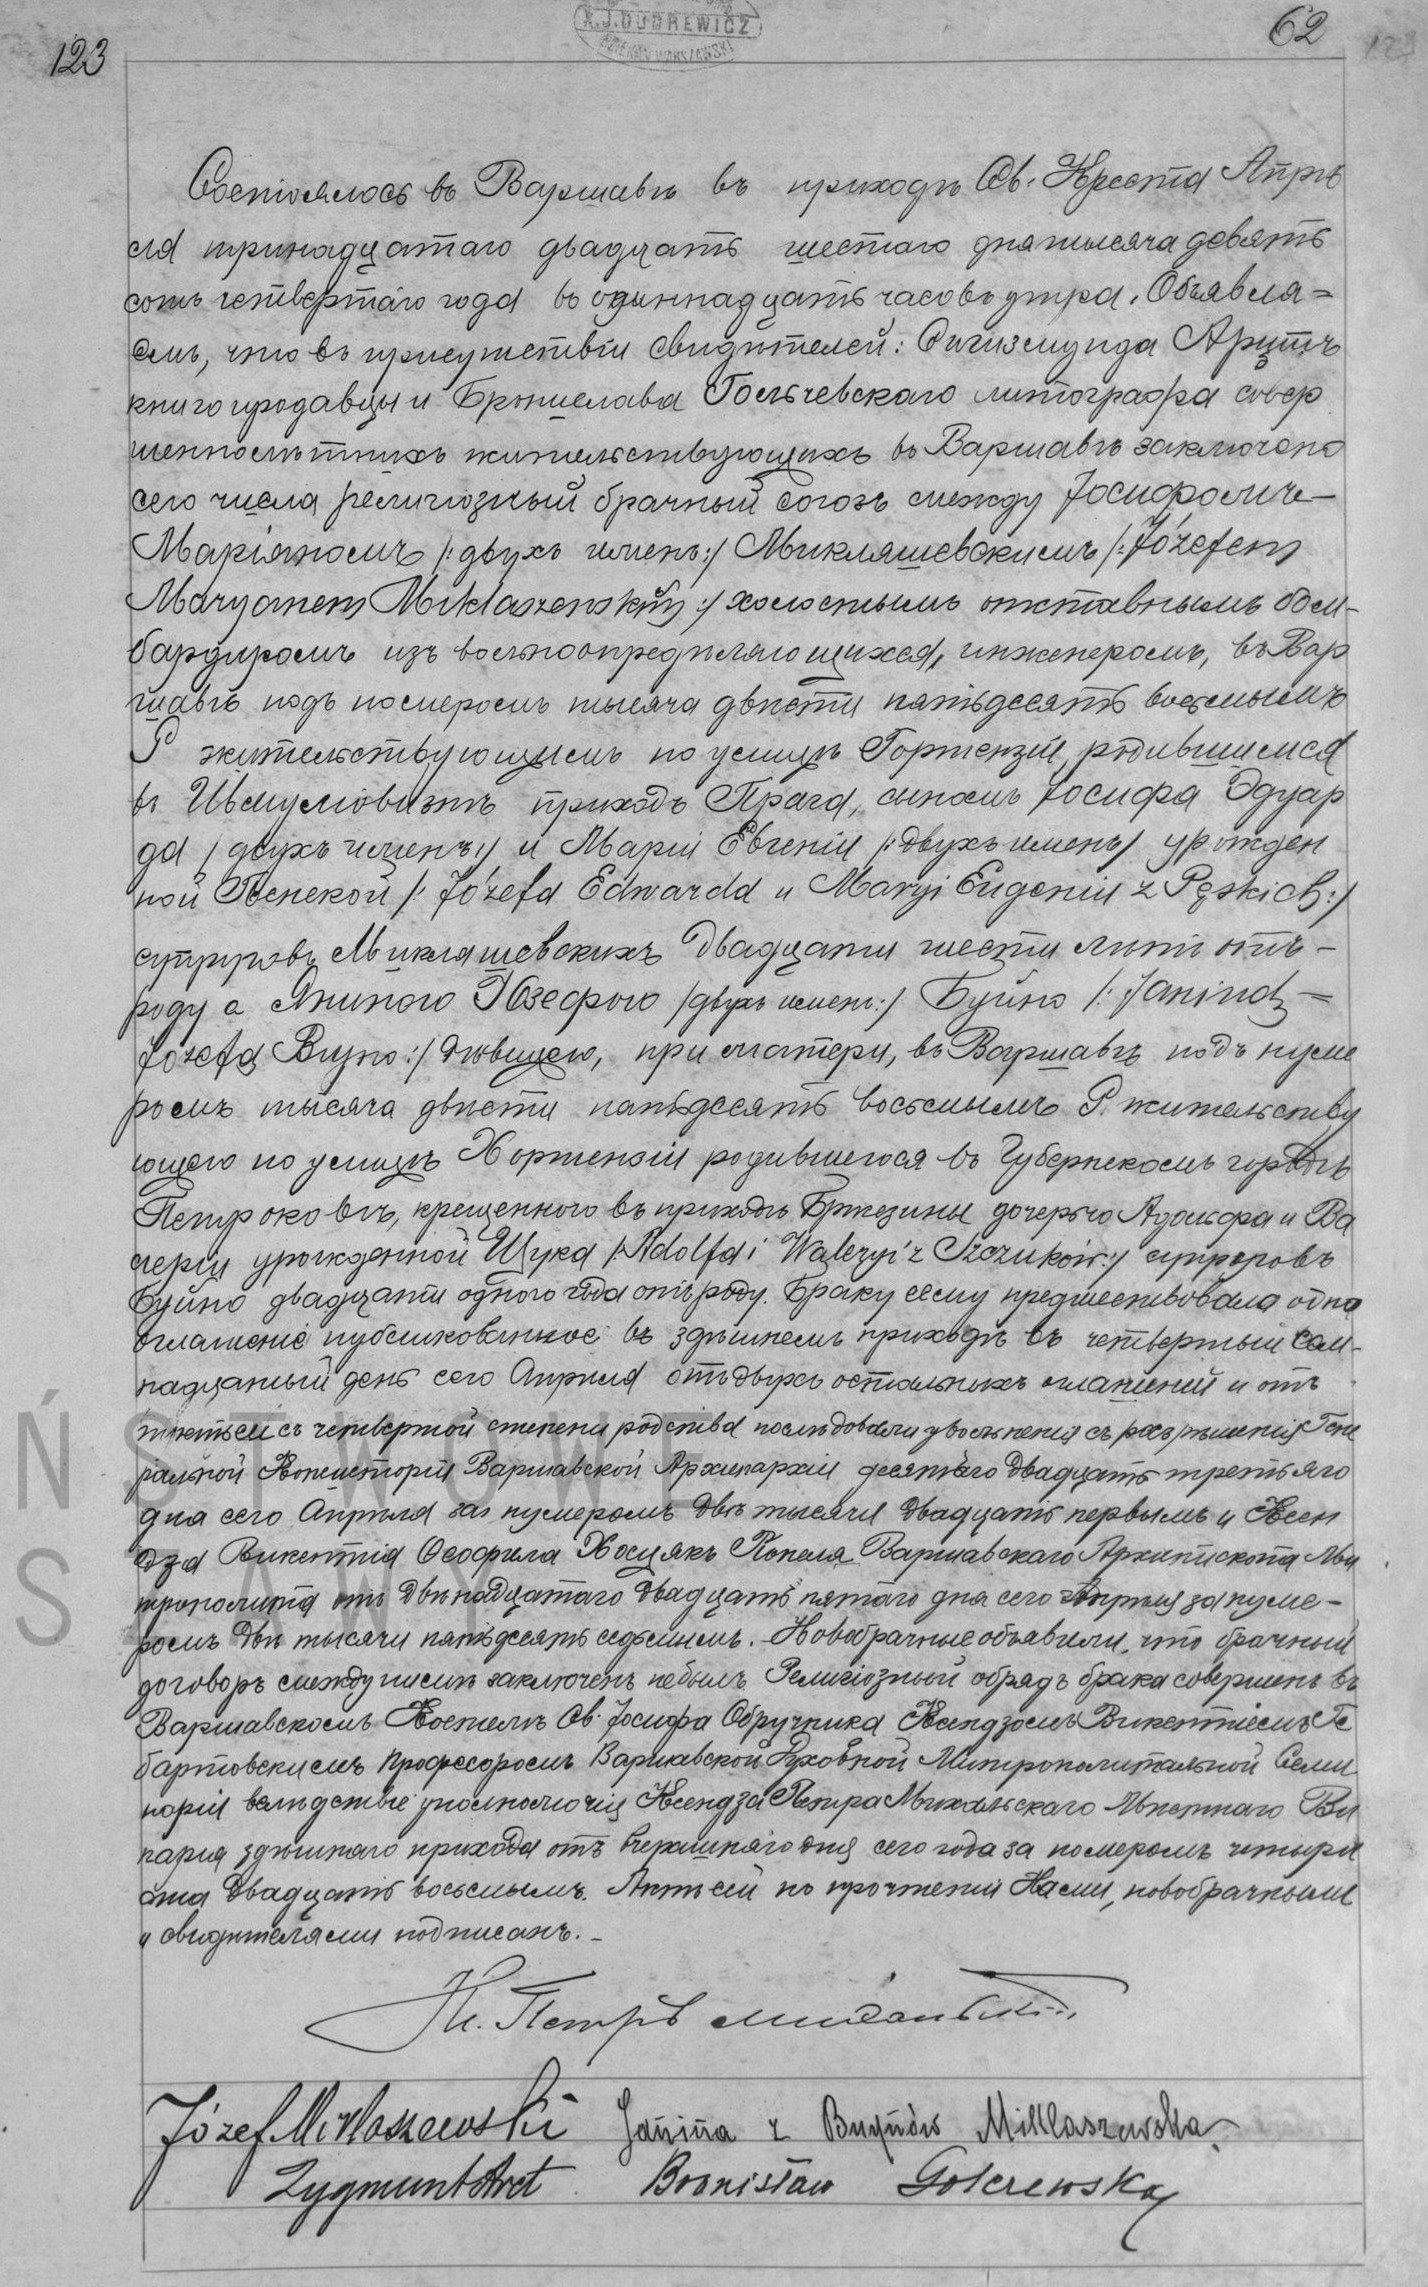 X.J.DUDREWICZ
DZIEKAN WARSZAWSKI
123
62
123
Состоялось въ Варшавѣ въ приходѣ Св. Креста Апрѣ
ля тринадцатаго двадцать шестаго дня тысяча девять
сотъ четвертаго года въ одиннадцать часовъ утра. Объявля=
емъ, что въ присутствіи свидѣтелей: Сигизмунда Арцтъ
книгопродавцы и Бронислава Гольчевскаго литографа совер
шеннолѣтнихъ жительствующихъ въ Варшавѣ заключено
сего числа религіозный брачный союзъ между Іосифомъ—
Маріяномъ /:двухъ именъ:/ Микляшевскимъ /:Józefem
Maryanem Miklaszewskim:/ холостымъ отставнымъ бом-
бардиромъ изъ вольноопредѣляющихся, инженеромъ, въ Вар
шавѣ подъ номеромъ тысяча двѣсти пятьдесятъ восьмымъ
Р жительствующимъ по улицѣ Гортензіи, родившимся
въ приходѣ Прага, сыномъ Іосифа Эдуар
да /двухъ именъ:/ и Маріи Евгеніи /:двухъ именъ/ урожден
ной Пенской /: Józefa Edwarda и Maryi Eugenii z Pęskich:/
супруговъ Микляшевскихъ двадцати шести лѣтъ отъ—
роду а Яниною Юзефою /двухъ именъ:/ Буйно /:Janiną=
Józefą Buyno:/ дѣвицею, при матери, въ Варшавѣ подъ нуме
ромъ тысяча двѣсти пятьдесятъ восьмымъ Р. жительству
ющею по улицѣ Хортензіи родившеюся въ Губернскомъ городѣ
Петроковѣ, крещенною въ приходѣ Бржезины дочерью Адольфа и Ва
леріи урожденной Щука /:Adolfa i Waleryi z Szczuków:/ супруговъ
Буйно двадцати одного года отъ роду. Браку сему предшествовала одна
оглашеніе публикованное въ здѣшнемъ приходѣ въ четвертый сем-
надцатый день сего Апрѣля отъ двухъ остальныхъ оглашеній и отъ
третьей съ четвертой степени родства послѣдовали увольненія съ разрѣшенія Гене
ральной Консисторіи Варшавской Архіепархіи десятаго двадцать третьяго
дня сего Апрѣля за нумеромъ двѣ тысячи двадцать первымъ и Ксен
дза Викентія Ѳеофила Хосцякъ Попеля Варшавскаго Архіепископа Ми
трополита отъ двѣнадцатаго двадцать пятаго дня сего Апрѣля за нуме-
ромъ двѣ тысячи пятьдесятъ седьмымъ.-Новобрачные объявили, что брачный
договоръ между ними заключенъ не былъ. Религіозный обрядъ брака совершенъ въ
Варшавскомъ Костелѣ Св. Іосифа Обручника Ксендзомъ Викентіемъ Ге
бартовскимъ Профессоромъ Варшавской Духовной Митрополитальной Семи
наріи вслѣдствіе уполномочія Ксендза Петра Михальскаго Мѣстнаго Ви
карія здѣшняго прихода отъ вчерашняго дня сего года за номеромъ четыре
ста двадцать восьмымъ. Актъ сей по прочтеніи Нами, новобрачными
и свидѣтелями подписанъ.-
Кс. Петръ Михальскій
Józef Miklaszewski Janina z Buynów Miklaszewska
Zygmunt Arct Bronisław Golczewski